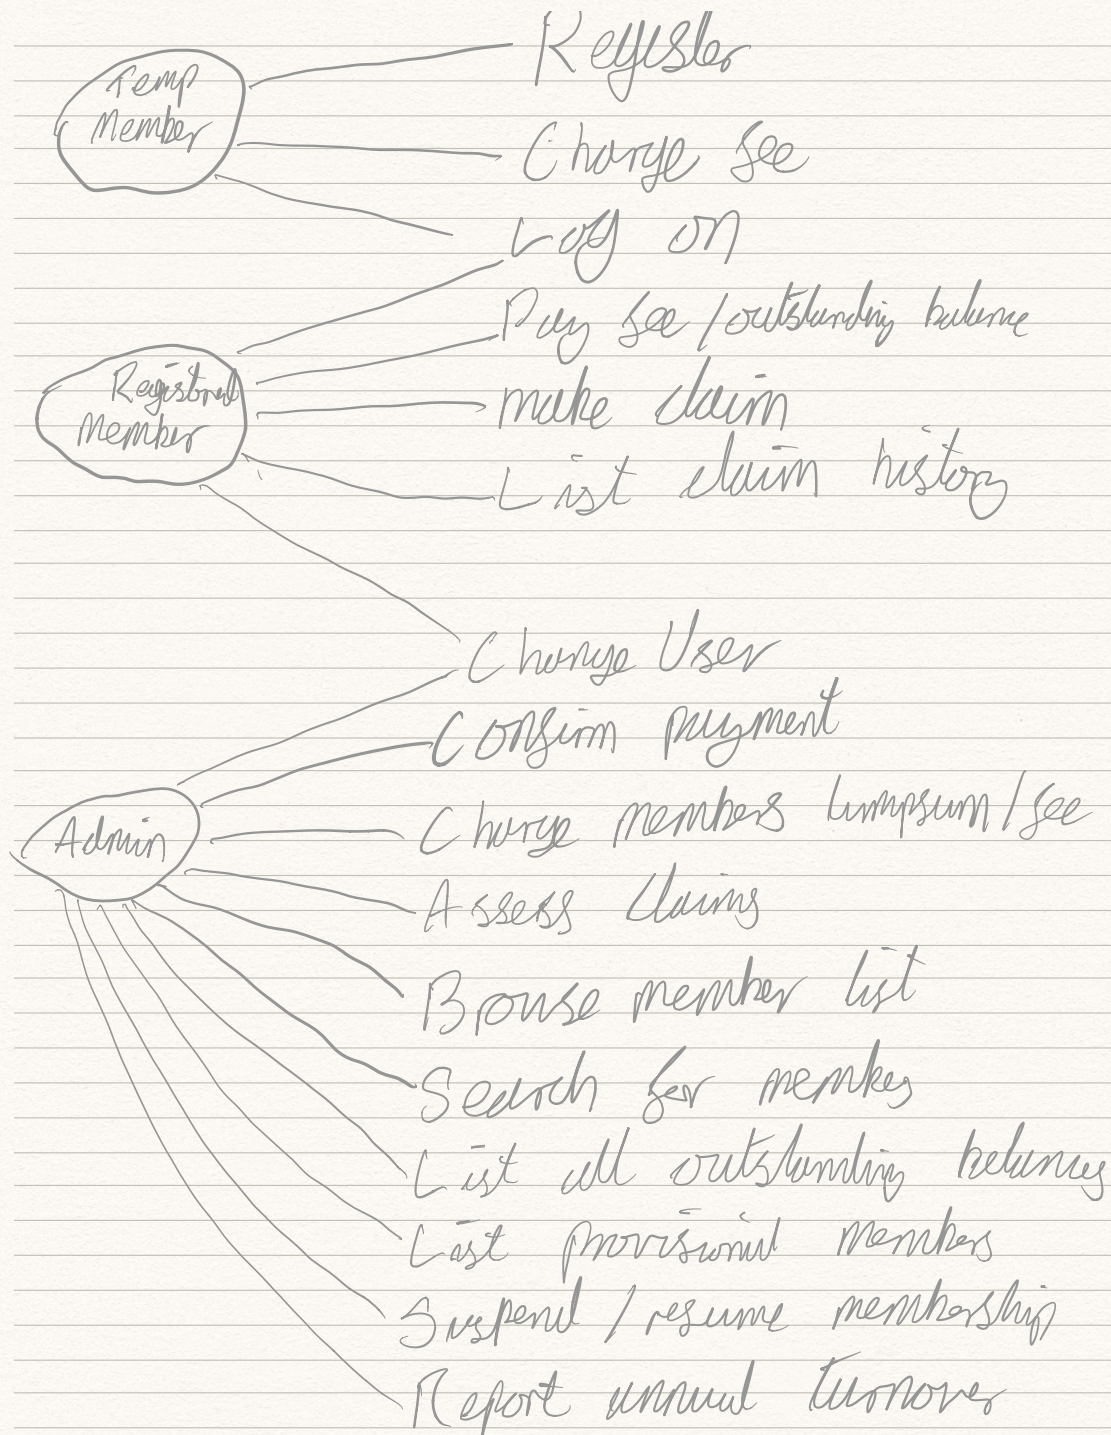 Temp
Member
Register
Charge fee
Log on
Pay fee / outstanding balance
Registered
Member
make claim
List claim history
Change User
Confirm payment
Admin
Charge members lumpsum / fee
Assess Claims
Browse member list
Search for members
List all outstanding balances
List provisional members
Suspend / resume membership
Report annual turnover